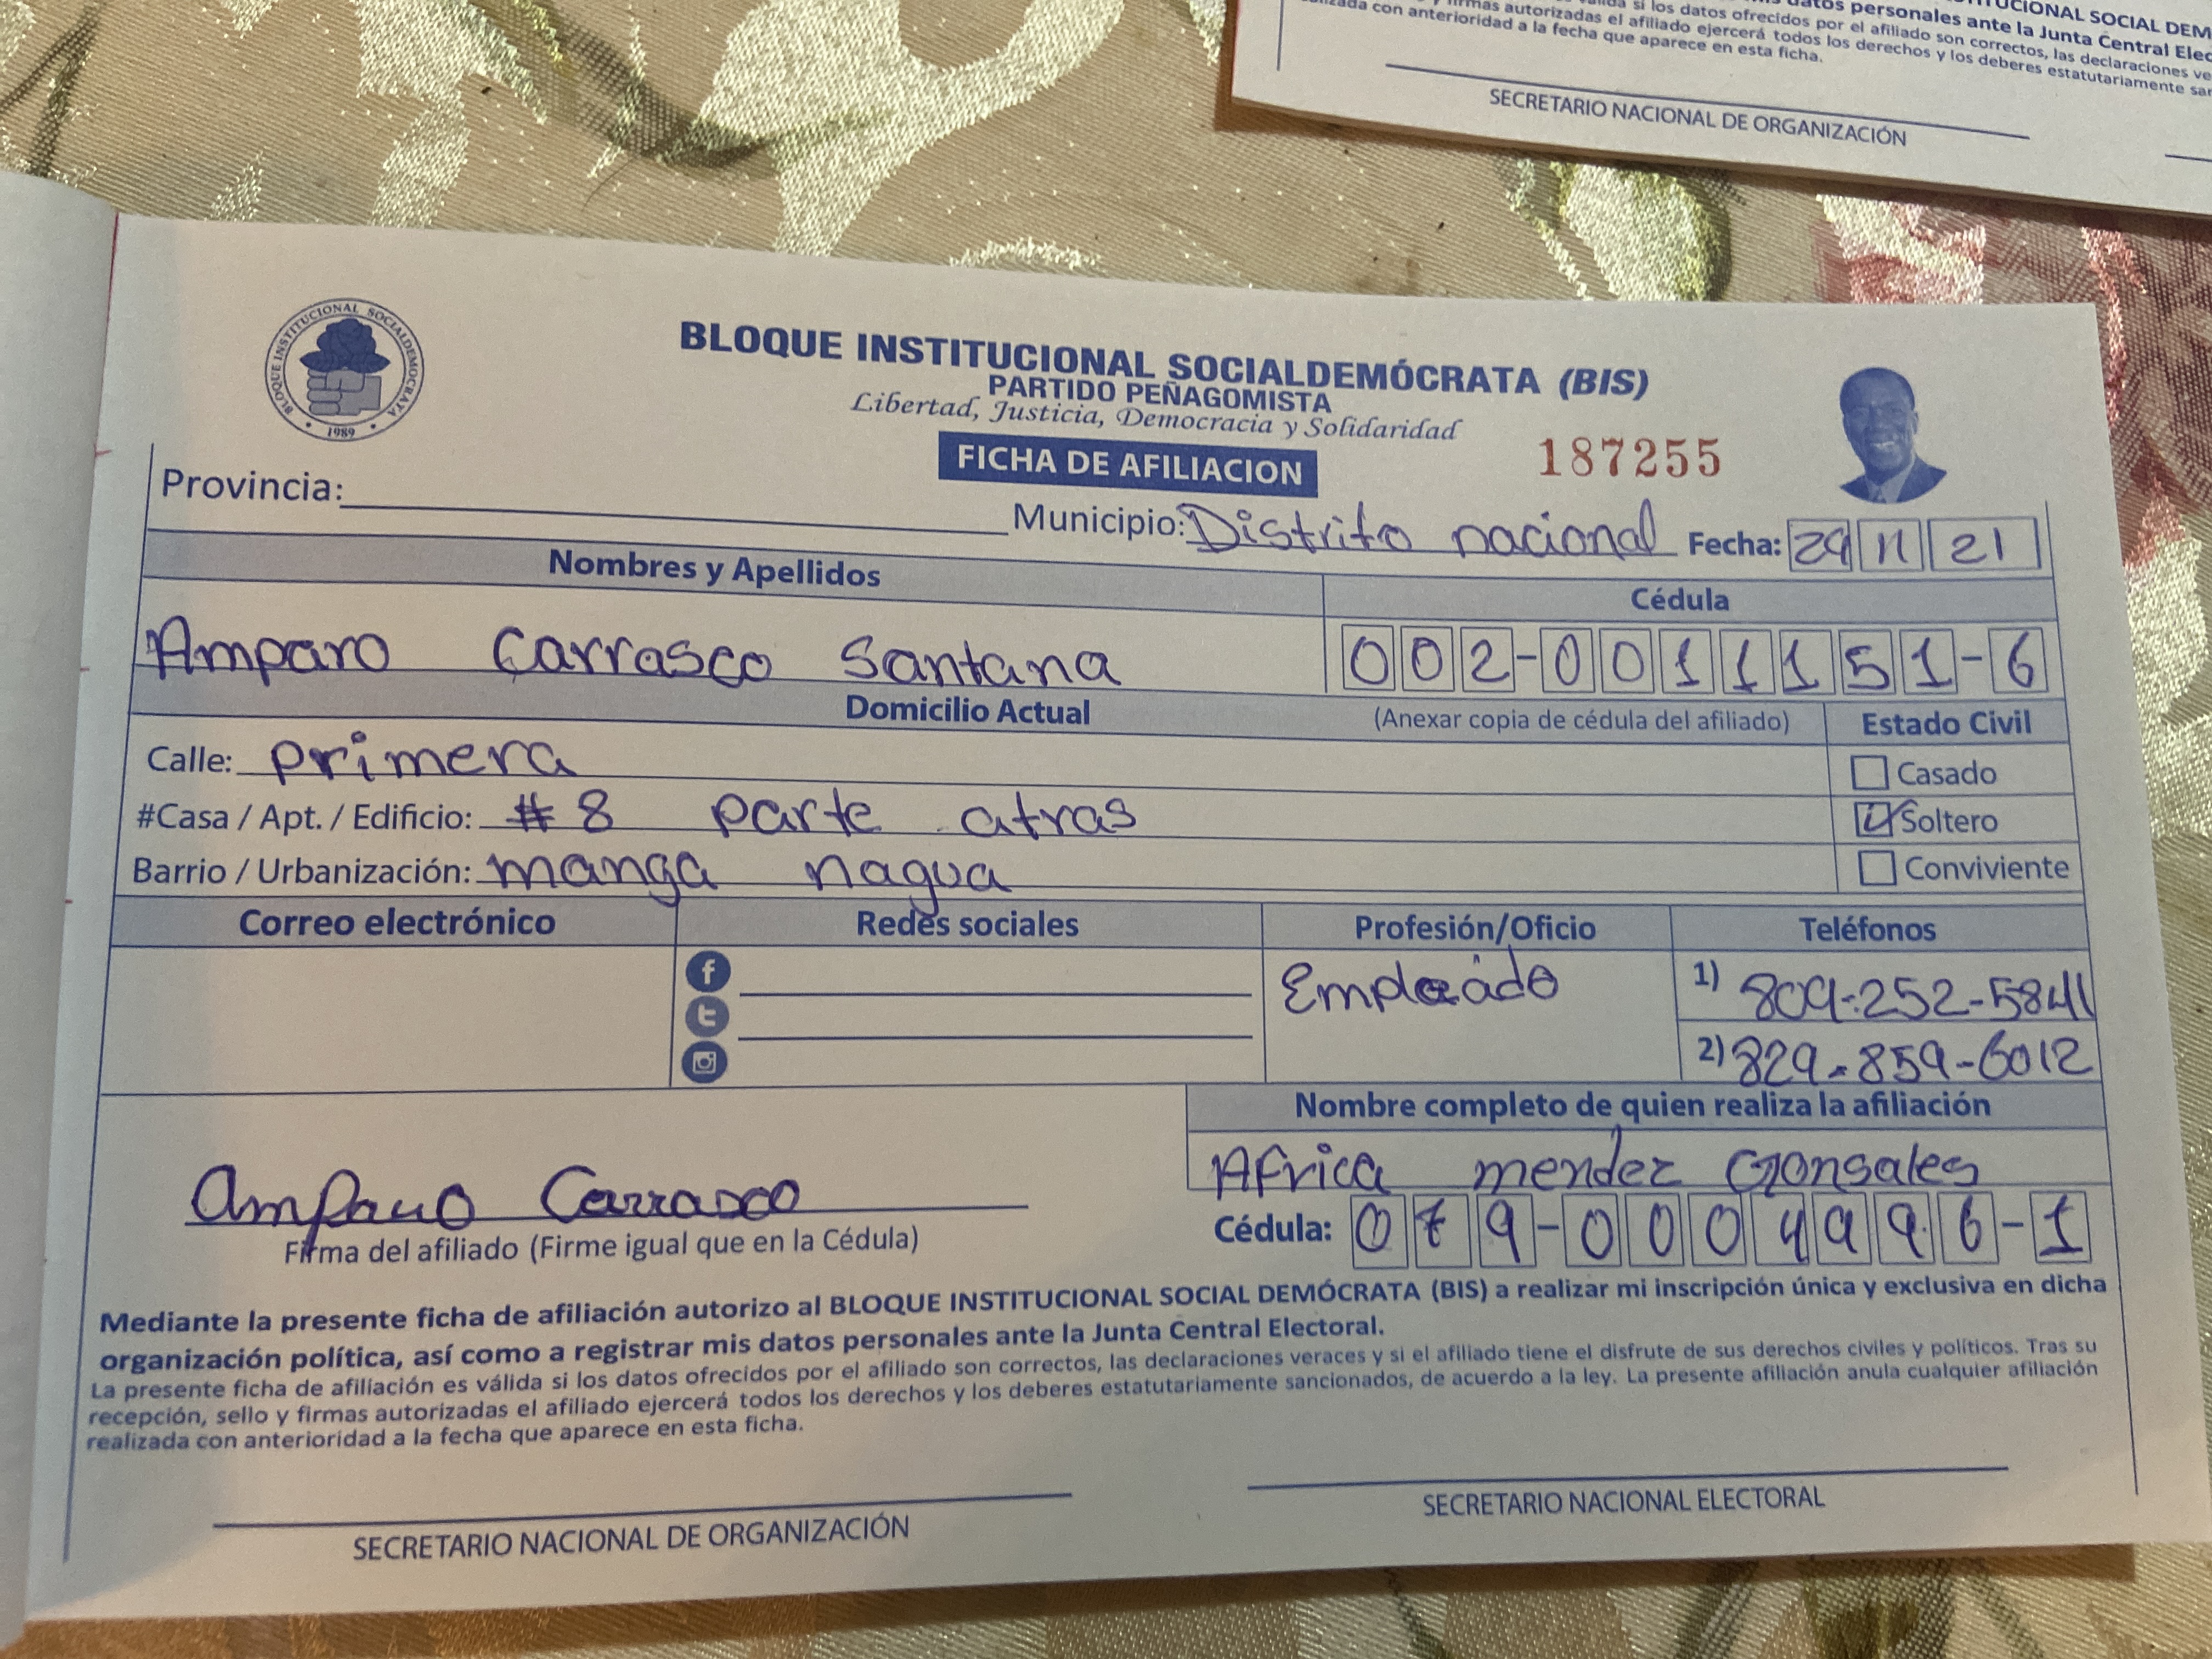 datos personales ante la Junta Central Elec
si los datos ofrecidos por el afiliado son correctos, las declaraciones ve
firmas autorizadas el afiliado ejercerá todos los derechos y los deberes estatutariamente sar
con anterioridad a la fecha que aparece en esta ficha.
SECRETARIO NACIONAL DE ORGANIZACIÓN
BLOQUE INSTITUCIONAL SOCIALDEMOCRATA
1989
BLOQUE INSTITUCIONAL SOCIALDEMÓCRATA (BIS)
PARTIDO PEÑAGOMISTA
Libertad, Justicia, Democracia y Solidaridad
FICHA DE AFILIACION
187255
Provincia:
Municipio: Distrito nacional Fecha: 29 11 21
Nombres y Apellidos Cédula
Amparo Carrasco Santana 002-0011151-6
Domicilio Actual (Anexar copia de cédula del afiliado) Estado Civil
Calle: primera Casado
#Casa / Apt. / Edificio: #8 parte atras Soltero
Barrio / Urbanización: manga nagua Conviviente
Correo electrónico Redes sociales Profesión/Oficio Teléfonos
Empleado 1) 809-252-5841
2) 829-859-6012
Nombre completo de quien realiza la afiliación
Africa mendez Gonsales
Amparo Carrasco
Firma del afiliado (Firme igual que en la Cédula)
Cédula: 079-0004996-1
Mediante la presente ficha de afiliación autorizo al BLOQUE INSTITUCIONAL SOCIAL DEMÓCRATA (BIS) a realizar mi inscripción única y exclusiva en dicha
organización política, así como a registrar mis datos personales ante la Junta Central Electoral.
La presente ficha de afiliación es válida si los datos ofrecidos por el afiliado son correctos, las declaraciones veraces y si el afiliado tiene el disfrute de sus derechos civiles y políticos. Tras su
recepción, sello y firmas autorizadas el afiliado ejercerá todos los derechos y los deberes estatutariamente sancionados, de acuerdo a la ley. La presente afiliación anula cualquier afiliación
realizada con anterioridad a la fecha que aparece en esta ficha.
SECRETARIO NACIONAL DE ORGANIZACIÓN
SECRETARIO NACIONAL ELECTORAL